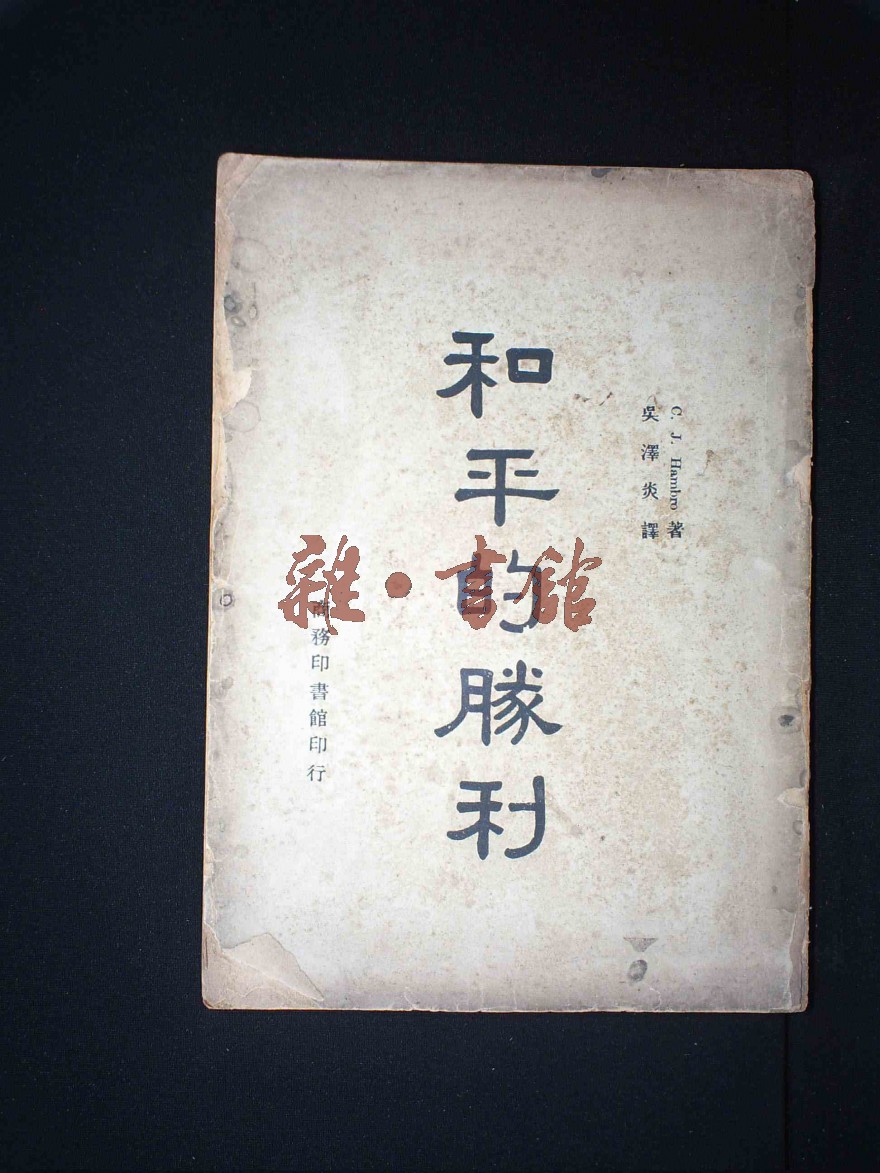 C. J. Hambro 著
吳澤炎譯
和平的勝利
商務印書館印行
雜·書館